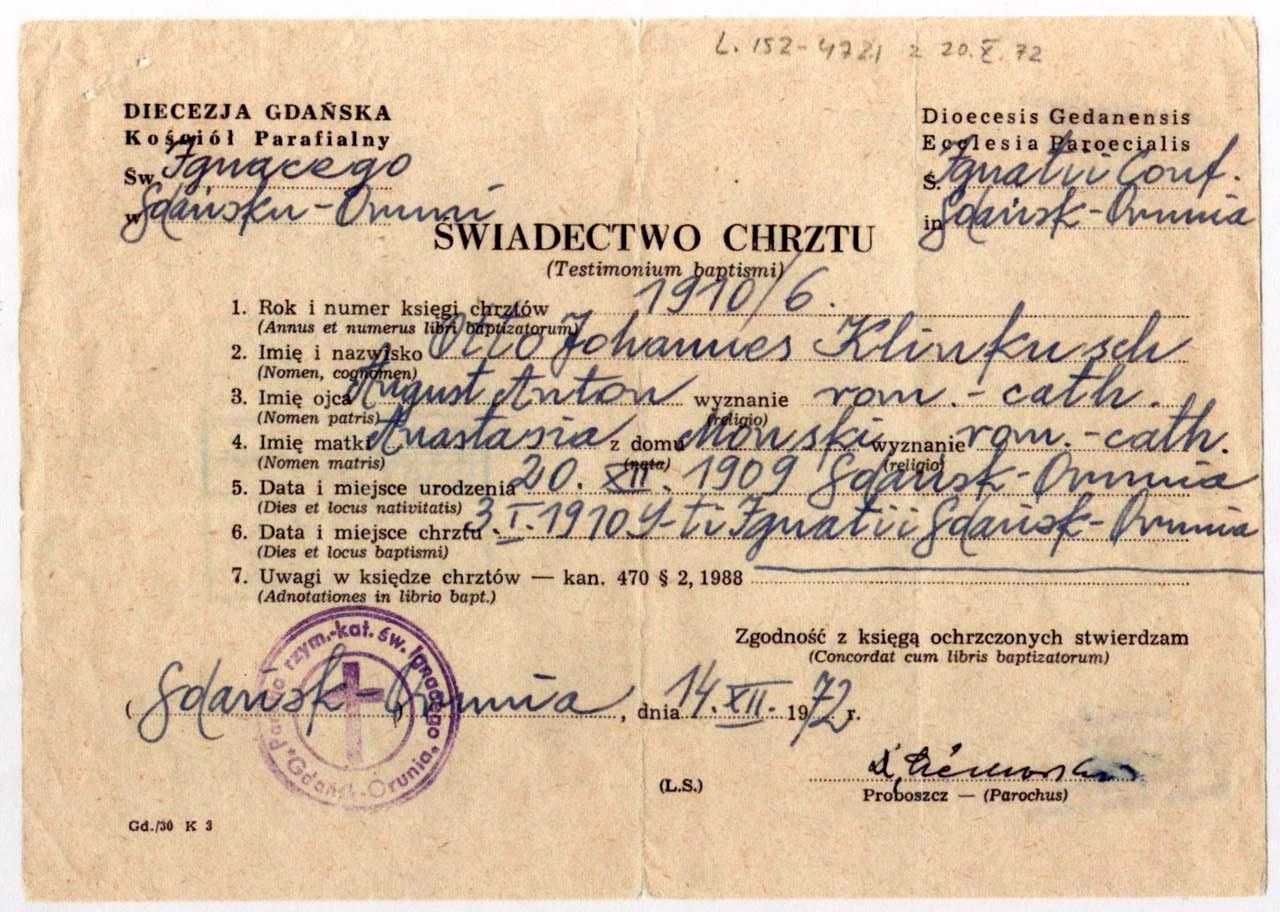 L. 152-472.1 z 20.X.72
DIECEZJA GDAŃSKA
Kościół Parafialny
Św. Ignacego
w Gdańsku-Oruni
Dioecesis Gedanensis
Ecclesia Paroecialis
S. Ignatii Conf.
in Gdańsk-Orunia
ŚWIADECTWO CHRZTU
(Testimonium baptismi)
1. Rok i numer księgi chrztów 1910/6.
(Annus et numerus libri baptizatorum)
2. Imię i nazwisko Otto Johannes Klinkusch
(Nomen, cognomen)
3. Imię ojca August Anton wyznanie rom.-cath.
(Nomen patris) (religio)
4. Imię matki Anastasia z domu Monski wyznanie rom.-cath.
(Nomen matris) (nata) (religio)
5. Data i miejsce urodzenia 20. XII. 1909 Gdańsk-Orunia
(Dies et locus nativitatis)
6. Data i miejsce chrztu 3.I.1910 S-ti Ignatii Gdańsk-Orunia
(Dies et locus baptismi)
7. Uwagi w księdze chrztów — kan. 470 § 2, 1988
(Adnotationes in librio bapt.)
Zgodność z księgą ochrzczonych stwierdzam
(Concordat cum libris baptizatorum)
Parafia rzym.-kat. św. Ignacego
*Gdańsk-Orunia*
(Gdańsk-Orunia), dnia 14.XII. 1972 r.
(L.S.)
Proboszcz — (Parochus)
Gd./30 K 3